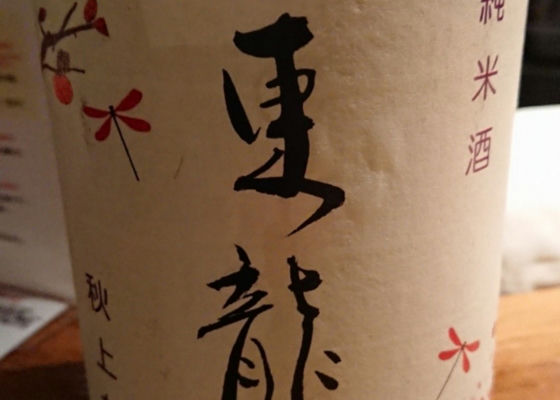 純米酒
東龍
秋上